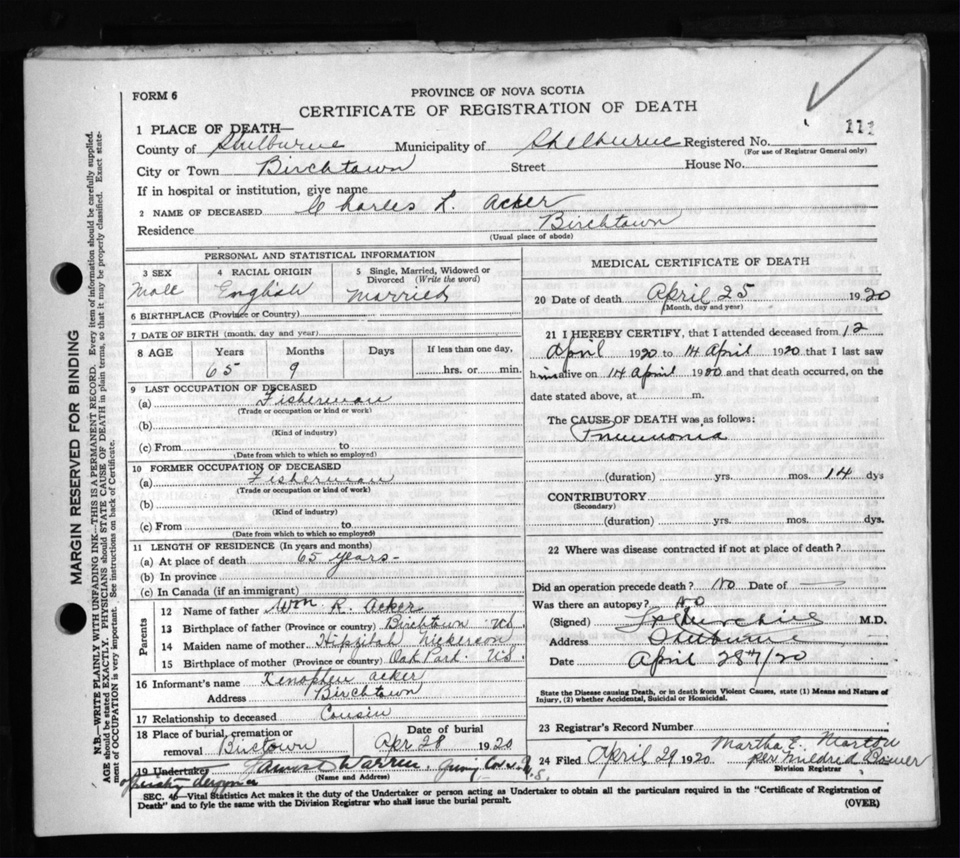 FORM 6
PROVINCE OF NOVA SCOTIA
CERTIFICATE OF REGISTRATION OF DEATH
111
1 PLACE OF DEATH—
County of Shelburne Municipality of Shelburne Registered No.
(For use of Registrar General only)
City or Town Birchtown Street House No.
If in hospital or institution, give name
2 NAME OF DECEASED Charles L. Acker
Residence Birchtown
(Usual place of abode)
PERSONAL AND STATISTICAL INFORMATION
3 SEX Male
4 RACIAL ORIGIN English
5 Single, Married, Widowed or Divorced (Write the word) Married
6 BIRTHPLACE (Province or Country)
7 DATE OF BIRTH (month, day and year)
8 AGE Years Months Days If less than one day,
65 9 hrs. or min.
9 LAST OCCUPATION OF DECEASED
(a) Fisherman
(Trade or occupation or kind or work)
(b)
(Kind of industry)
(c) From to
(Date from which to which so employed)
10 FORMER OCCUPATION OF DECEASED
(a) Fisherman
(Trade or occupation or kind or work)
(b)
(Kind of industry)
(c) From to
(Date from which to which so employed)
11 LENGTH OF RESIDENCE (In years and months)
(a) At place of death 65 years-
(b) In province
(c) In Canada (if an immigrant)
Parents
12 Name of father Wm R. Acker
13 Birthplace of father (Province or country) Birchtown NS.
14 Maiden name of mother Hipzibah Nickerson
15 Birthplace of mother (Province or country) Oak Park. NS.
16 Informant's name acker
Address Birchtown
17 Relationship to deceased Cousin
18 Place of burial, cremation or removal Date of burial
Apr 28 1920
19 Undertaker Warren
(Name and Address)
MEDICAL CERTIFICATE OF DEATH
20 Date of death April 25 1920
(Month, day and year)
21 I HEREBY CERTIFY, that I attended deceased from 12
April 1920 to 14 April 1920 that I last saw
him alive on 14 April 1920 and that death occurred, on the
date stated above, at m.
The CAUSE OF DEATH was as follows:
Pneumonia
(duration) yrs. mos. 14 dys
CONTRIBUTORY
(Secondary)
(duration) yrs. mos. dys.
22 Where was disease contracted if not at place of death?
Did an operation precede death? no Date of —
Was there an autopsy? no
(Signed) M.D.
Address Shelburne
Date April 28th/20
State the Disease causing Death, or in death from Violent Causes, state (1) Means and Nature of
Injury, (2) whether Accidental, Suicidal or Homicidal.
23 Registrar's Record Number
24 Filed April 29 1920 Martha E.
per Mildred Bower
Division Registrar
SEC. 40—Vital Statistics Act makes it the duty of the Undertaker or person acting as Undertaker to obtain all the particulars required in the "Certificate of Registration of
Death" and to fyle the same with the Division Registrar who shall issue the burial permit.
(OVER)
MARGIN RESERVED FOR BINDING
N.B.—WRITE PLAINLY WITH UNFADING INK—THIS IS A PERMANENT RECORD. Every item of information should be carefully supplied.
AGE should be stated EXACTLY. PHYSICIANS should STATE CAUSE OF DEATH in plain terms, so that it may be properly classified. Exact state-
ment of OCCUPATION is very important. See instructions on back of Certificate.